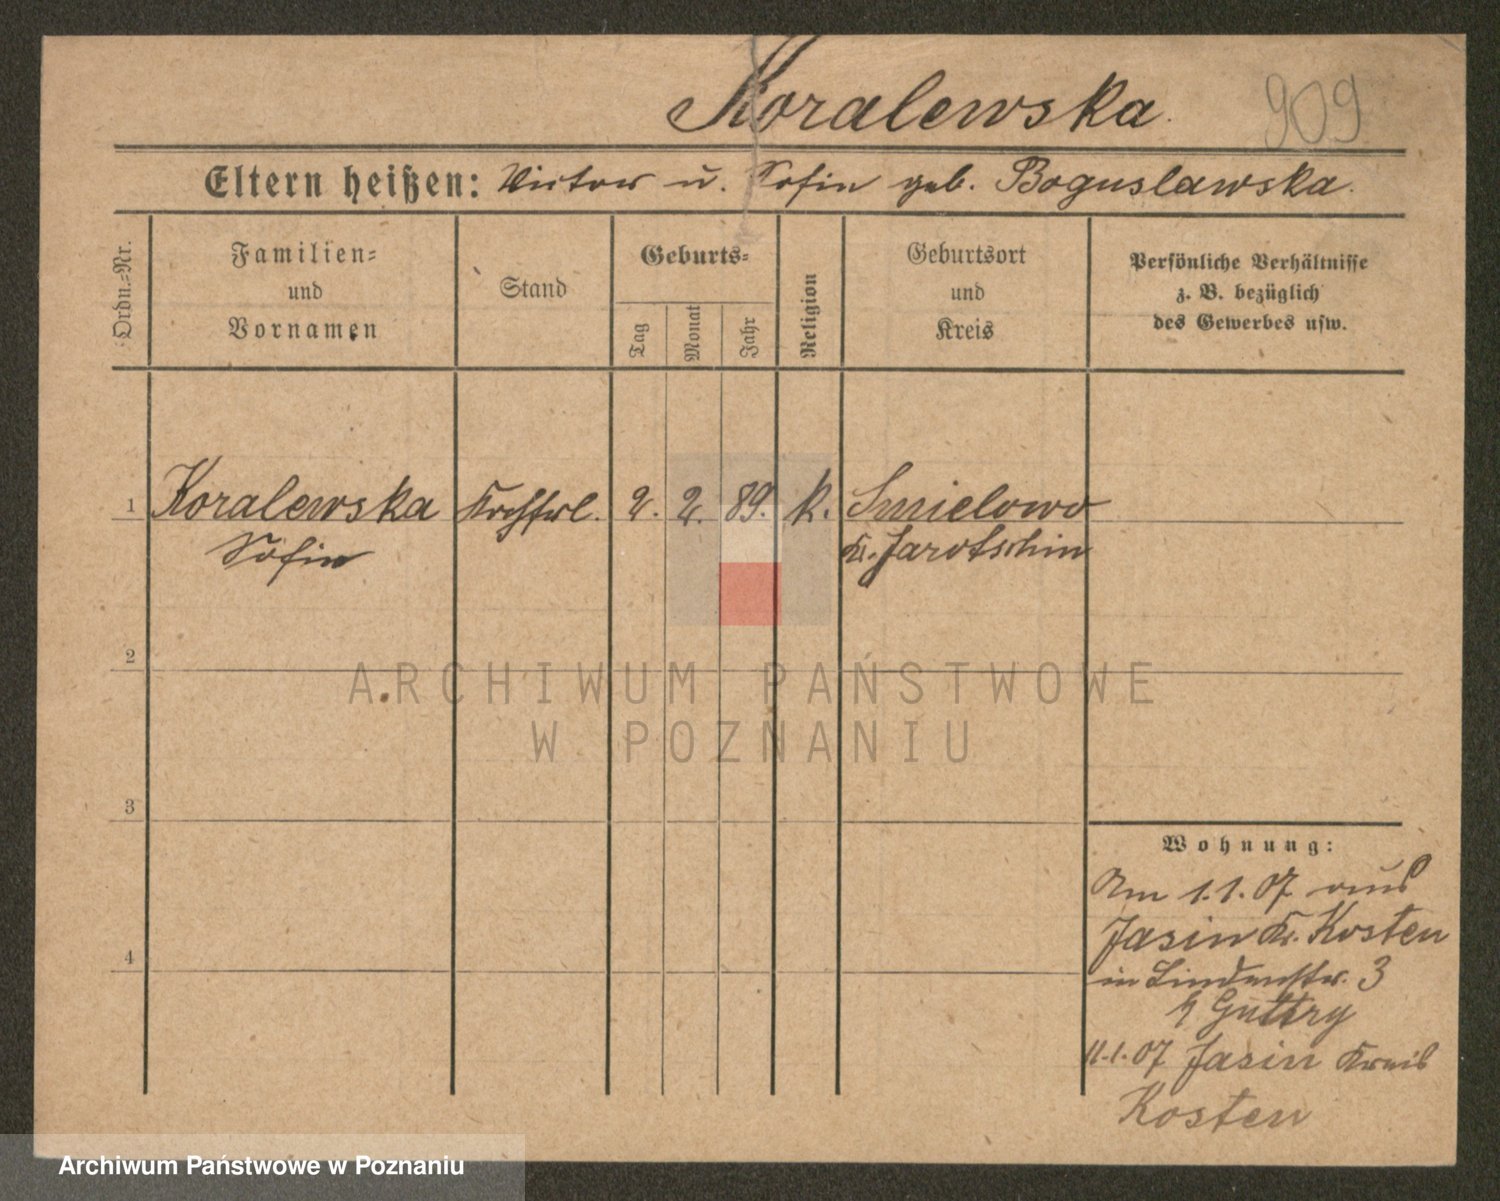 Koralewska.
909
Eltern heißen: Victor u. Sofie geb. Boguslawska.
Ordn.-Nr.
Familien-
und
Vornamen
Stand
Geburts-
Tag
Monat
Jahr
Religion
Geburtsort
und
Kreis
Persönliche Verhältnisse
z. B. bezüglich
des Gewerbes usw.
1 Koralewska 2. 2. 89. k. Smielowo
Sofie Kr. Jarotschin
2
ARCHIWUM PAŃSTWOWE
W POZNANIU
3
Wohnung:
Am 1.1.07 aus
Jasin Kr. Kosten
4
in Lindenstr. 3
Guttry
11.1.07 Jasin Kreis
Kosten
Archiwum Państwowe w Poznaniu